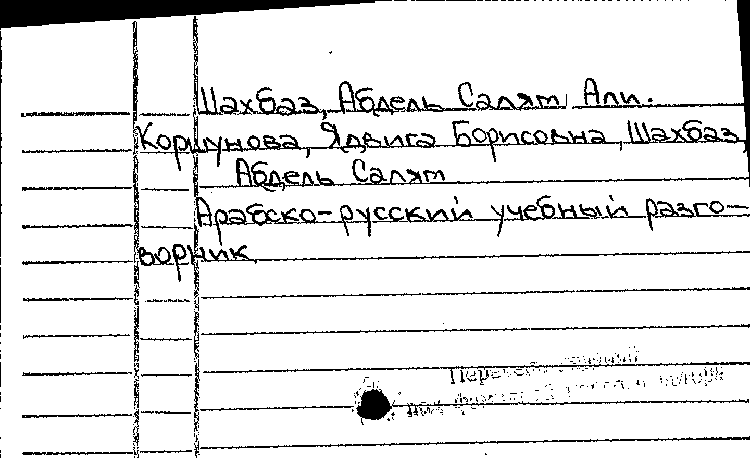 Шахбаз, Абдель Салям Али.
Коршунова, Ядвига Борисовна, Шахбаз,
Абдель Салям
Арабско-русский учебный разго-
ворник